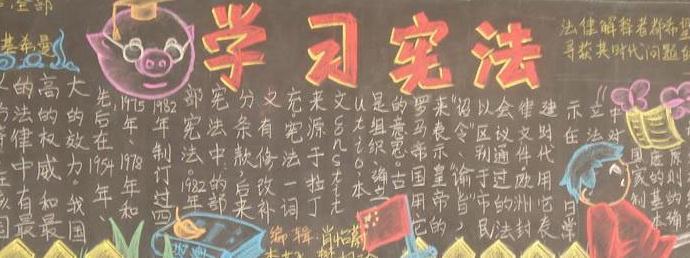 学习宪法
基希曼
法律解释者都希望
寻获其时代问题的
国家制
中对
“立法”
示在日常
建时代用它表
律文件欧洲封
会议通过的法
以区别于市民
“诏令”、“谕旨”，
来表示皇帝的
罗马帝国用它
的意思。古
是组织、确立
utio,本
文constit
来源于拉丁
充。宪法一词
又有修改补
分条款,后来
宪法中的部
部宪法。1982年
1982年制订过四
1975年、1978年和
先后在1954年
大的效力。我国
高的权威和最
的法律中有最
编辑:肖怡